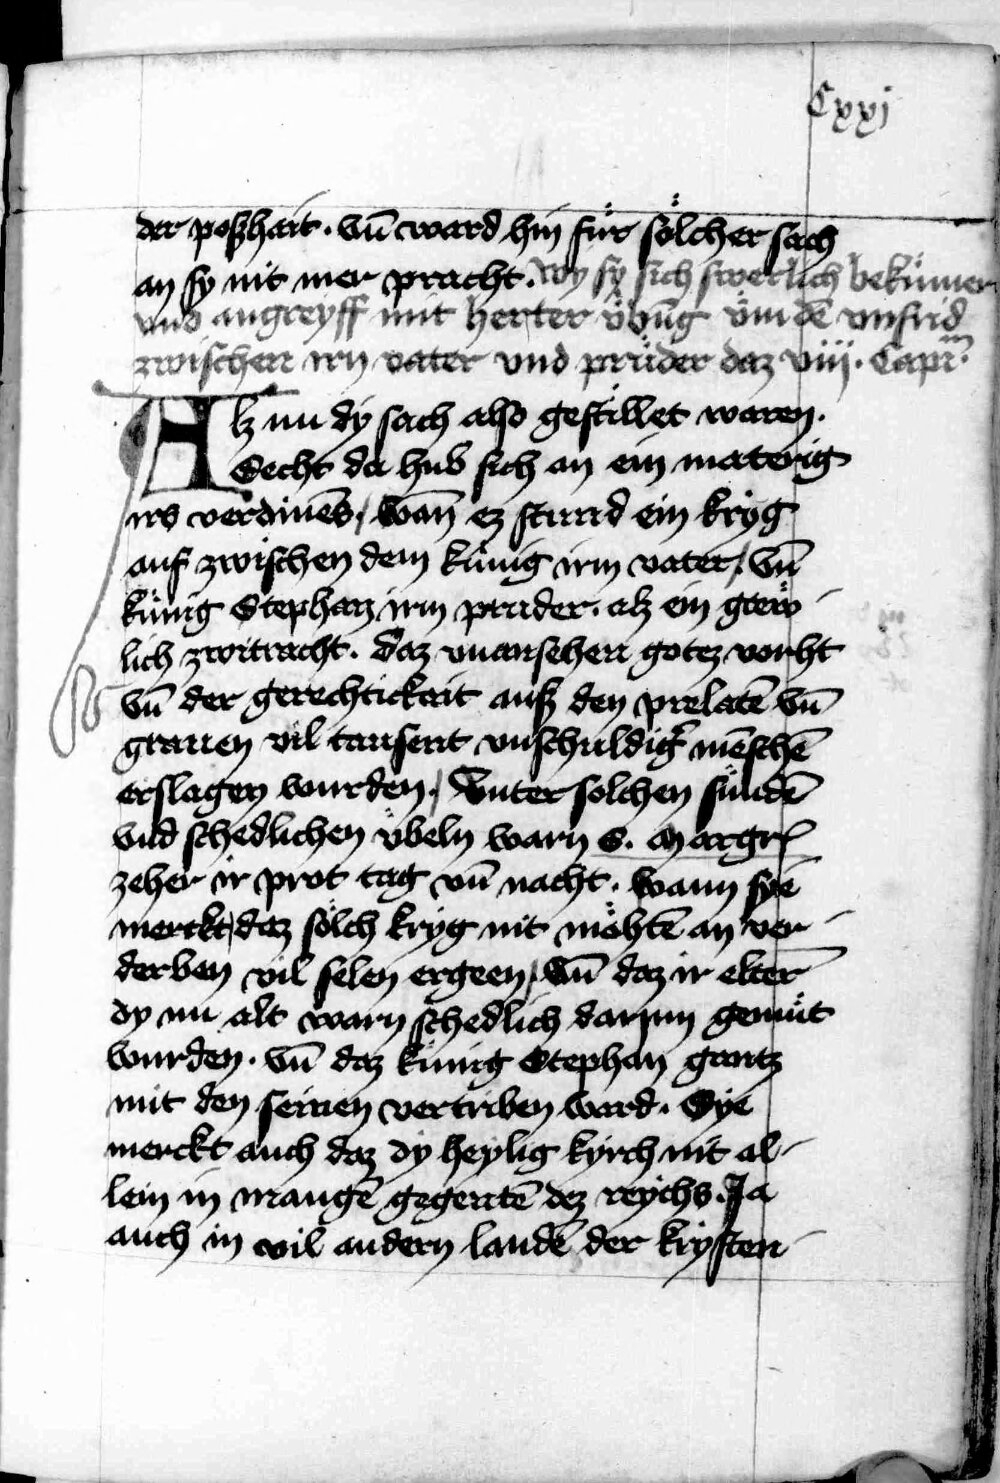 Cxxj
der poßhait. Vn̄ ward hin für sölcher sach
an sy nit mer pracht. Wy sy sich swerlich bekümer
vnd angreyff mit herter v̈būg v̈m dē vnfrid
zwischen irn vater vnd prüder daz viij. Capm̄.
Alz nu dy sach also gestillet waren.
Secht da hub sich an ein materig
irs verdinēs, wan̄ ez stund ein kryg
auf zwischen dem künig irm vater, vn̄
künig Stephan irm pruder. alz ein grew
lich zwitracht. Daz vnansehen gotez vorht
vn̄ der gerechtickait auß den prelatē vn̄
grauen vil tausent vnschuldig̃ mēschē
erslagen wurden. Vnter solchen sündē
vnd schedlichen v̈beln warn S. Margr̄
zeher ir prot tag vn̄ nacht. Wann sye
merckt, daz sölch kryg nit möhtē an ver-
derben vil selen ergeen, vn̄ daz ir eltern̄
dy nu alt warn schedlich darinn gemüt
wurden. Vn̄ daz künig Stephan gantz
mit den seinen vertriben ward. Sye
merckt auch daz dy heylig kyrch nit al-
lein in mangē gegentē dez reychs. Ja
auch in vil andern landē der krysten-